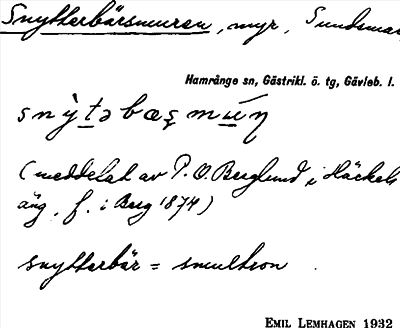 Snytterbärsmuren, myr, Sundsmar
Hamrånge sn, Gästrikl. ö. tg, Gävleb. l.
snỳt̠əbæʂmu̠̇́ŋ
(meddelat av P. O. Berglund i Häckels
äng, f. i Berg 1874)
snytterbär = smultron.
EMIL LEMHAGEN 1932